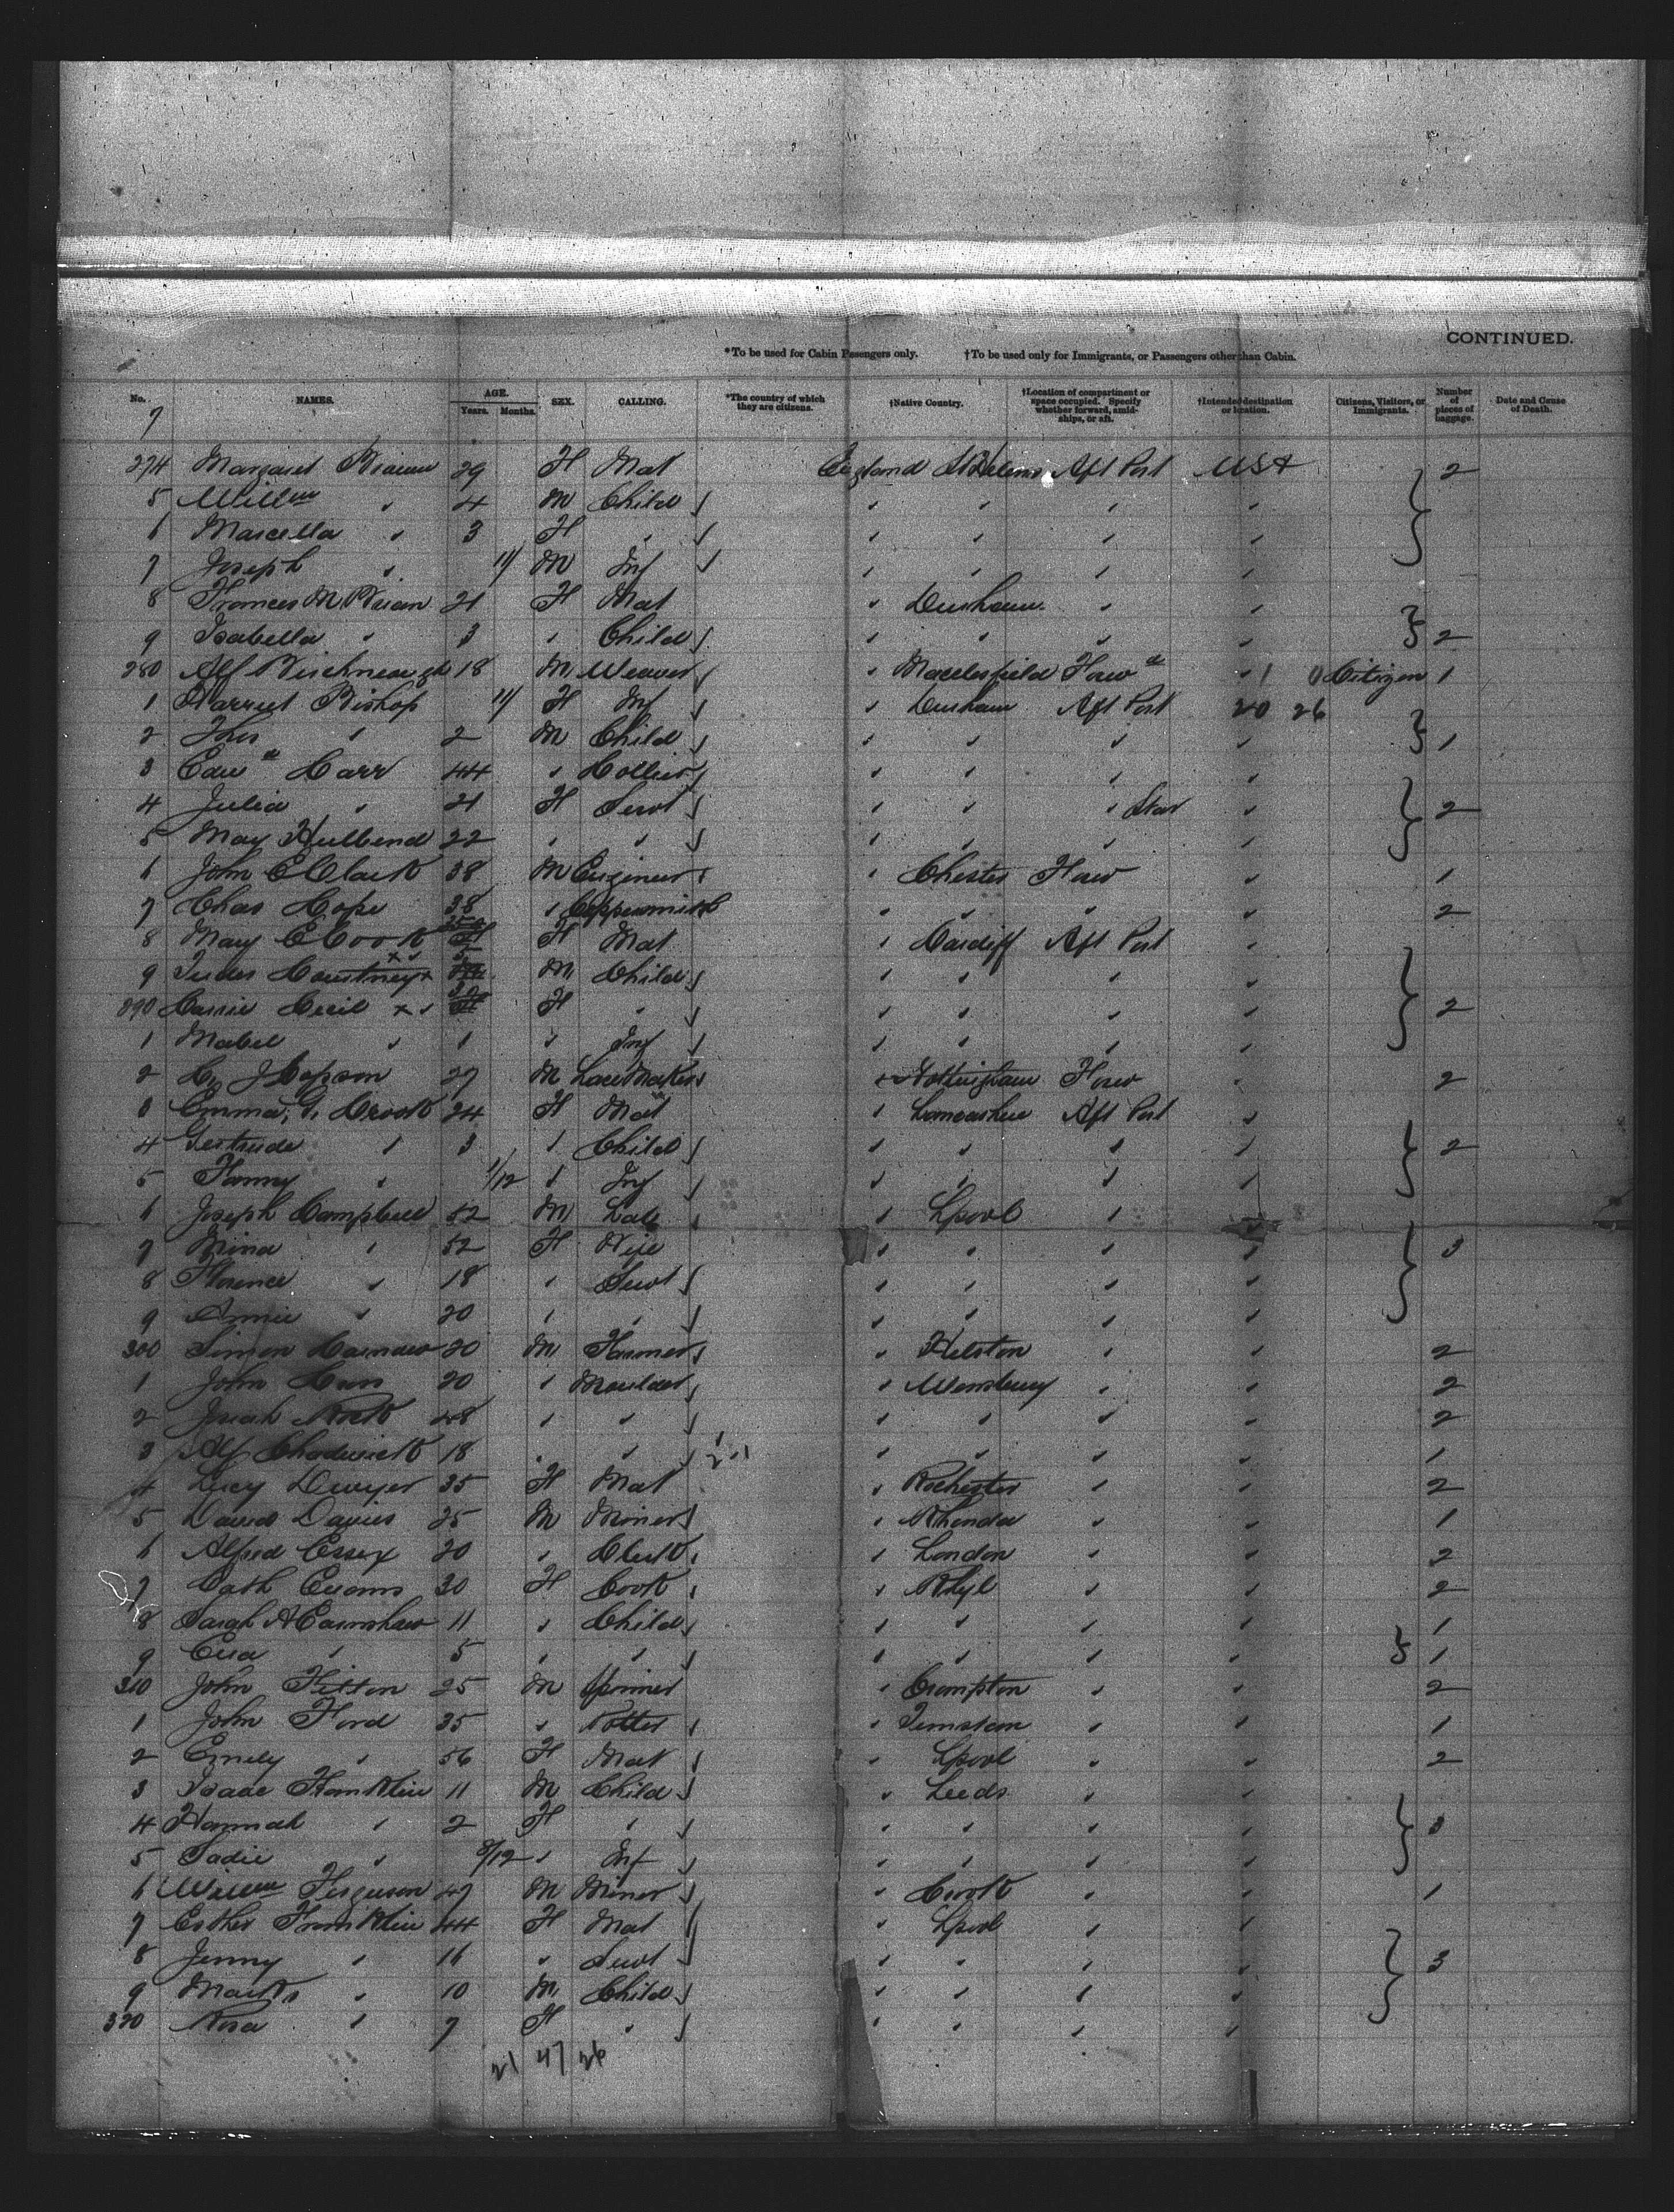 CONTINUED.
*To be used for Cabin Passengers only. †To be used only for Immigrants, or Passengers other than Cabin.
No. NAMES. AGE. Years. Months. SEX. CALLING. *The country of which they are citizens. †Native Country. †Location of compartment or space occupied. Specify whether forward, amidships, or aft. †Intended destination or location. Citizens, Visitors, or Immigrants. Number of pieces of baggage. Date and Cause of Death.
7
274 Margaret 29 F Mat England St Helens Aft Port USA 2
5 Willm " 4 M Child " " " "
6 Marcella " 3 F " " " " "
7 Joseph " 11/ M Inf " " " "
8 Frances M 21 F Mat " Durham " "
9 Isabella " 3 " Child " " " " 2
280 Alf 18 M Weaver " Macclesfield Forwd " 1 0 Citizen 1
1 Harriet Bishop 11/ F Inf " Durham Aft Port 20 26
2 Thos " 2 M Child " " " " 1
3 Edwd Carr 44 " Collier " " " "
4 Julia " 21 F Servt " " " Star " 2
5 May 22 " " " " " "
6 John E Clark 38 M Engineer " Chester Forw " 1
7 Chas Cope 38 " Coppersmith " " " " 2
8 Mary E Cook F Mat " Cardiff Aft Port "
9 Courtney x M Child " " " "
290 Cecil x " F " " " " " 2
1 Mabel " 1 " Inf " " " "
2 29 M Lace Maker " Nottingham Forw " 2
3 Emma G. Crook 24 F Mat " Lancashire Aft Port "
4 Gertrude " 3 " Child " " " " 2
5 Fanny " 1/12 " Inf " " " "
6 Joseph Campbell 52 M Lab " Lpool " "
7 Mina " 52 F Wife " " " " 3
8 Florence " 18 " Servt " " " "
9 Annie " 20 " " " " " "
300 Simon 20 M Farmer " Helston " " 2
1 John 20 " Moulder " " " 2
2 Josiah 48 " " " " " " 2
3 Alf Chadwick 18 " " " " " " 1
4 Lucy Dwyer 35 F Mat " Rochester " " 2
5 David Davies 25 M Miner " Rhonda " " 1
6 Alfred Essex 20 " Clerk " London " " 2
7 Cath Evans 30 F Cook " Rhyl " " 2
8 Sarah A Earnshaw 11 " Child " " " " 1
9 " 5 " " " " " " 1
310 John Fitton 25 M Spinner " Crompton " " 2
1 John Ford 35 " Potter " " " 1
2 Emily " 56 F Mat " Lpool " " 2
3 Isaac Franklin 11 M Child " Leeds " "
4 Hannah " 2 F " " " " " 3
5 Sadie " 8/12 " Inf " " " "
6 Willm Ferguson 47 M Miner " Crook " " 1
7 Esther Franklin 44 F Mat " Lpool " "
8 Jenny " 16 " Servt " " " " 3
9 Marks " 10 M Child " " " "
320 Rosa " 7 F " " " " "
21 47 26